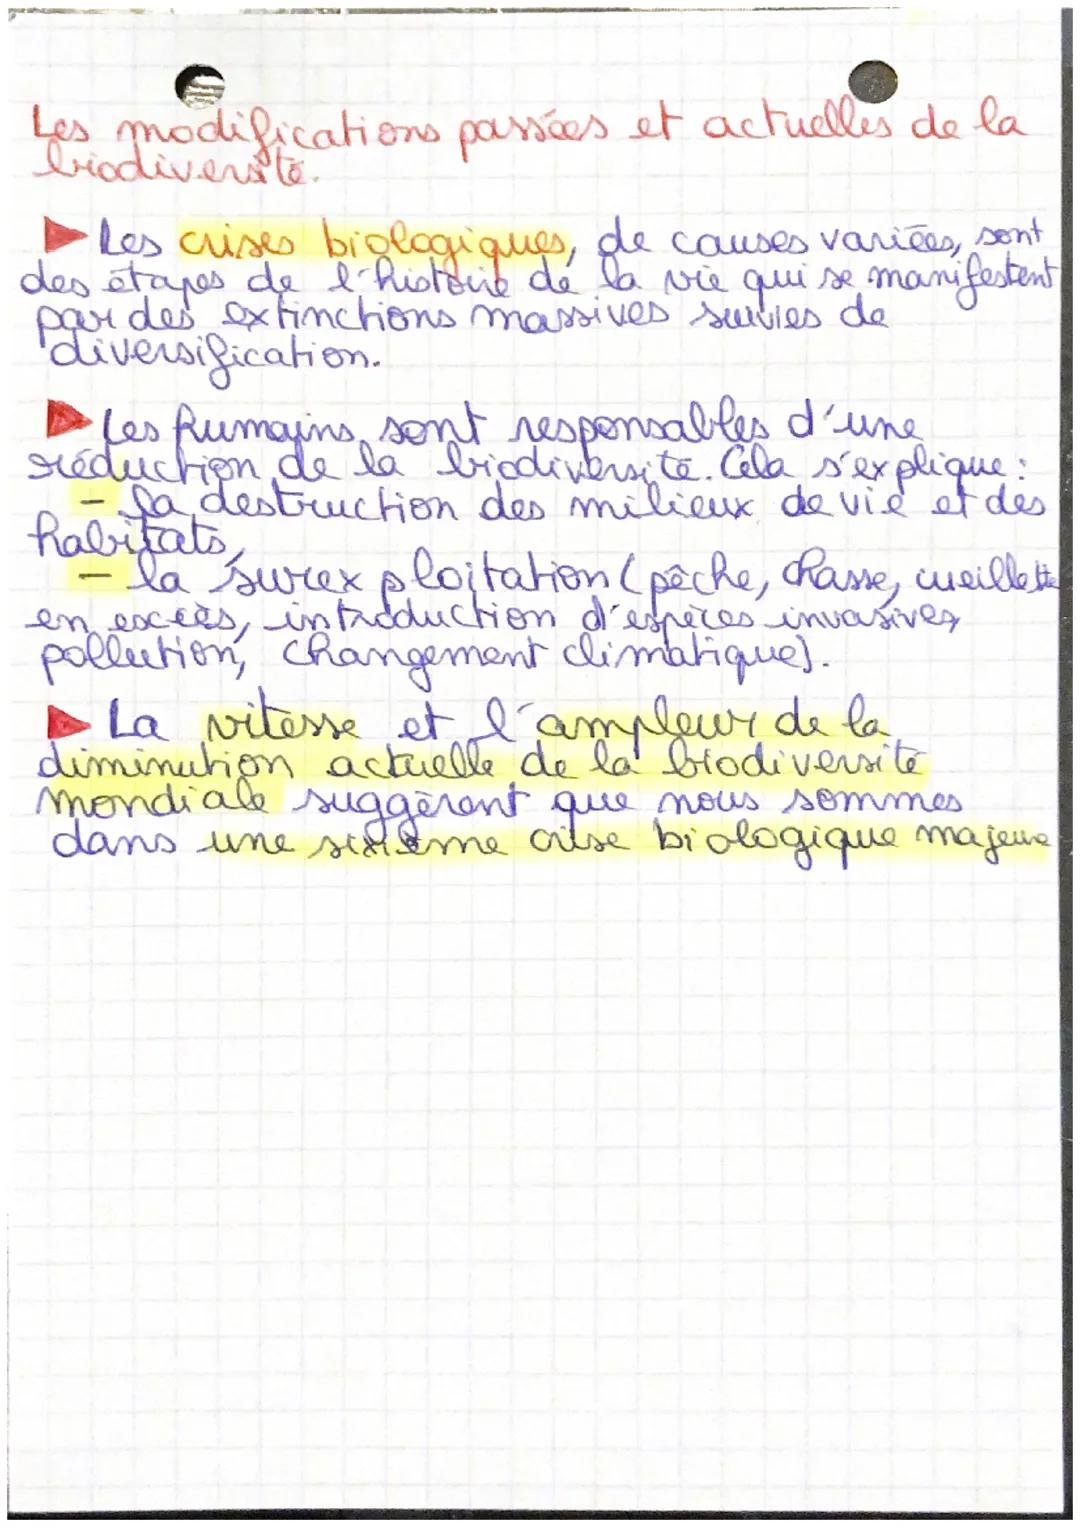 Les modifications passées et actuelles de la
biodiversité.
Les crises biologiques, de causes variées, sont
des étapes de l'histoire de la vie qui se manifestent
par des extinctions massives suivies de
diversification.
Les humains sont responsables d'une
réduction de la biodiversité. Cela s'explique :
- la destruction des milieux de vie et des
habitats,
- la surexploitation (pêche, chasse, cueillette
en excès, introduction d'espèces invasives,
pollution, changement climatique).
La vitesse et l'ampleur de la
diminution actuelle de la biodiversité
mondiale suggèrent que nous sommes
dans une sixième crise biologique majeure